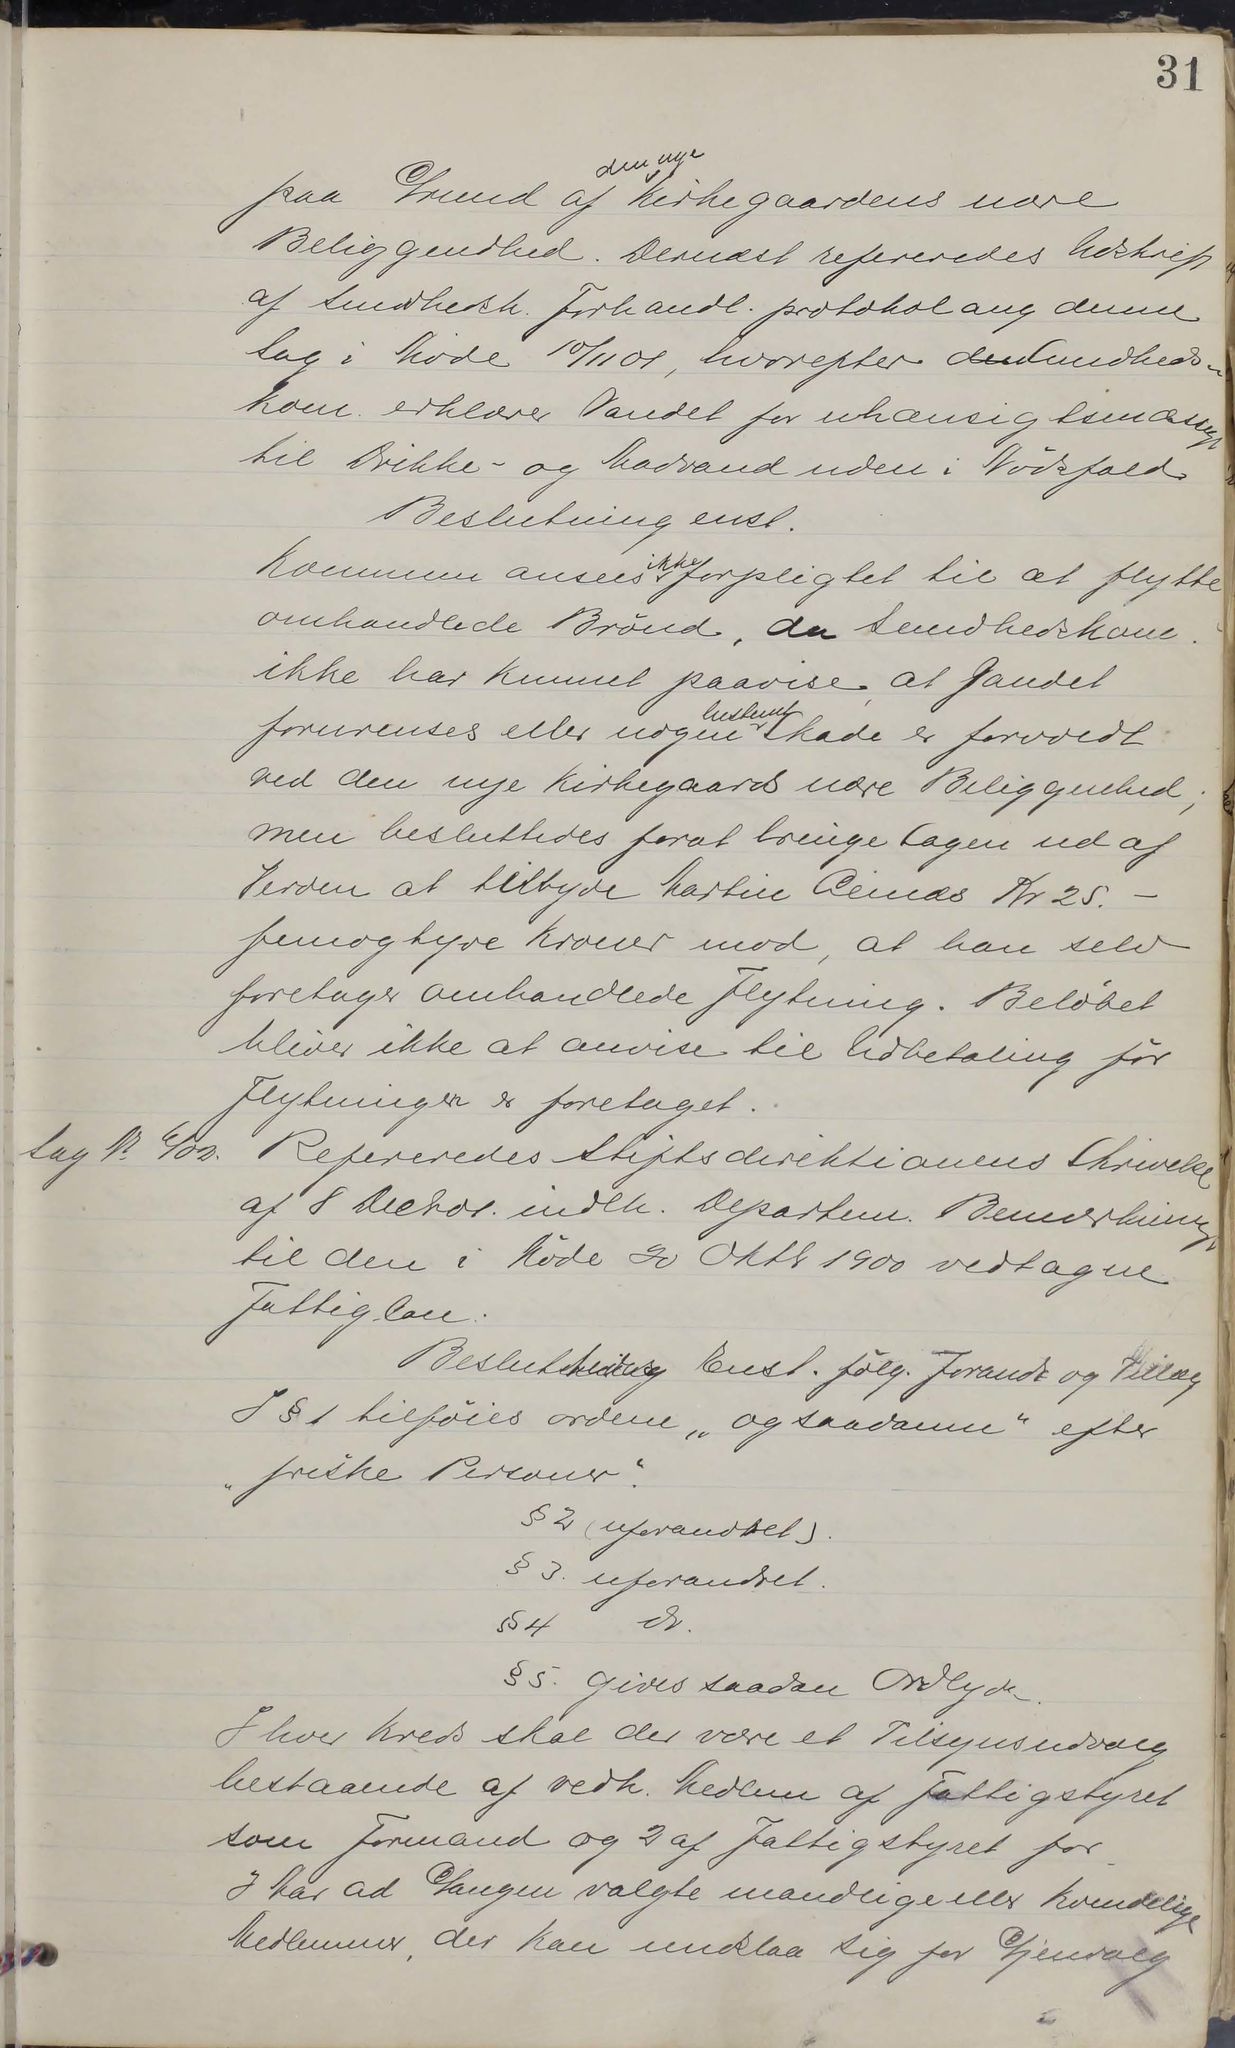 31
den nye
paa Grund af Kirkegaardens nære
Beliggendhed. Dernæst refereredes Udskrift
af Sundhedsk. Forhandl. protokol ang denne
Sag i Møde 10/11 01, hvorefter den Sundheds-
kom. erklærer Vandet for uhensigtsmæssigt
til Drikke- og Madvand uden i Nødsfald
Beslutning enst.
Kommunen ansees ikke forpligtet til at flytte
omhandlede Brønd, da Sundhedskom.
ikke har kunnet paavise, at Vandet
forurenses eller nogen bestemt Skade er forvoldt
ved den nye Kirkegaards nære Beliggenhed;
men besluttedes forat bringe Sagen ud af
Verden at tilbyde Martin Kr 25. -
femogtyve Kroner mod, at han selv
foretager omhandlede Flytning. Beløbet
bliver ikke at anvise til Udbetaling før
Flytningen er foretaget.
Sag No 6/02. Refereredes Stiftsdirektionens Skrivelse
af 8 Decbr. indeh. Departem. Bemerkning
til den i Møde 20 Oktb 1900 vedtagne
Fattiglov.
Beslutning Enst. følg. Forandr og Tillæg
I § 1 tilføies ordene „og saadanne" efter
„friske Personer".
§ 2 (uforandret).
§ 3. uforandret.
§ 4 do.
§ 5. gives saadan Ordlyd.
I hver Kreds skal der være et Tilsynsudvalg
bestaaende af vedk. Medlem af Fattigstyret
som Formand og 2 af Fattigstyret for
3 Aar ad Gangen valgte mandlige eller kvindelige
Medlemmer, der kan undslaa sig for Gjenvalg